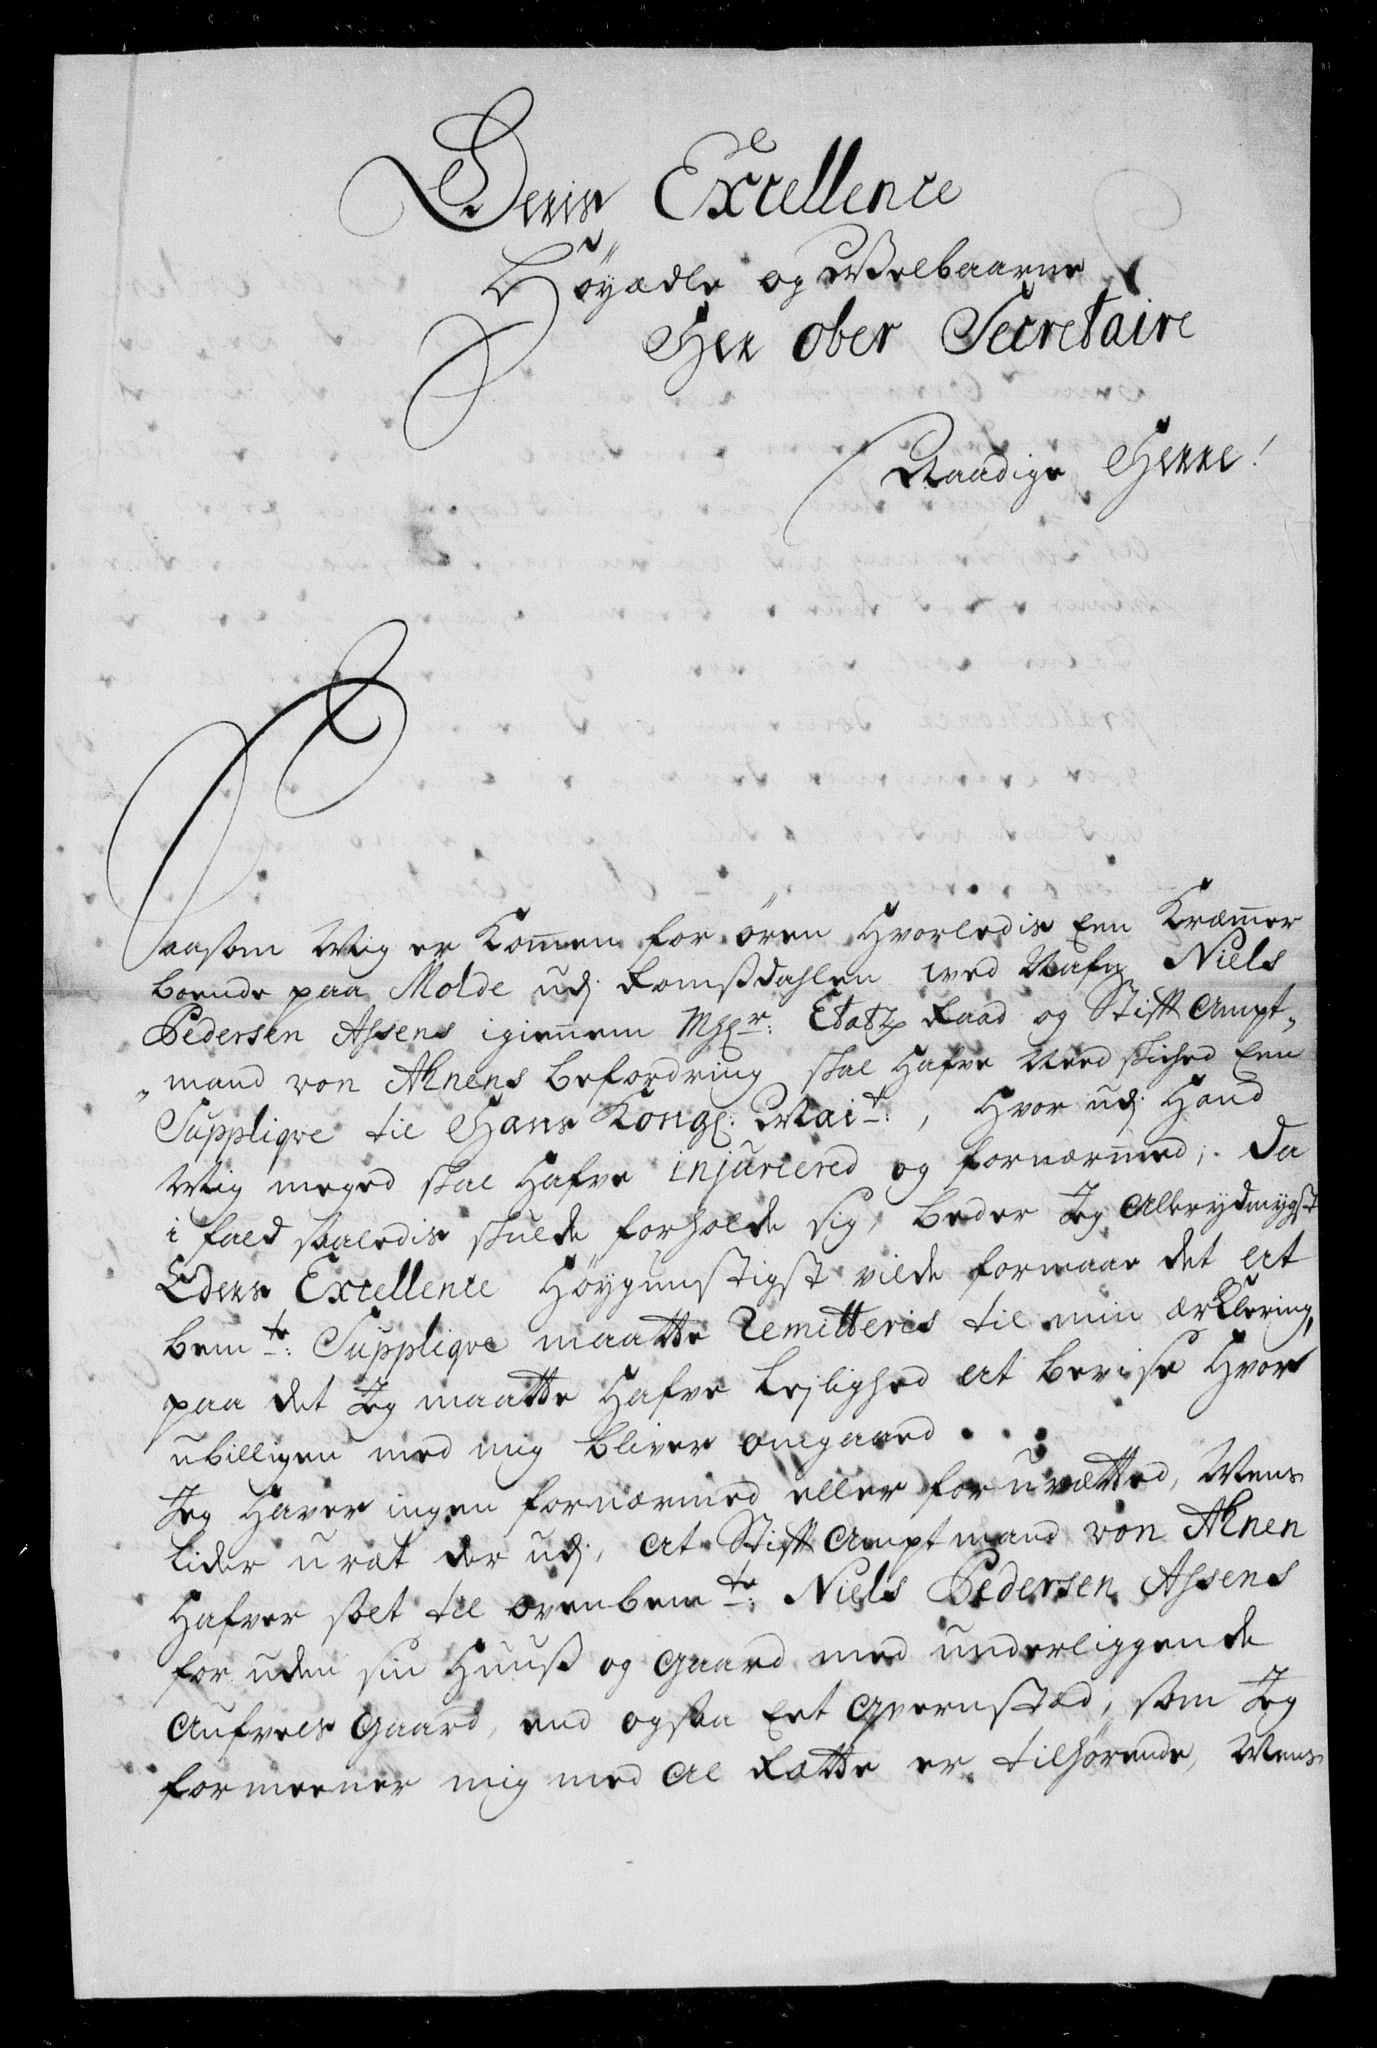 Deris Excellence
Höyædle og Welbaarne
Her Ober Secretaire
Naadige Herre!
Saasom Mig er Kom̄en for ören Hvorledis Een Kræm̄er
boende paa Molde udj Romßdahlen ved Nafn Niels
Pedersen Assens igien̄em Etatz Raad og Stift Ampt„
„mand von Ahnens befordring skal Hafve Need skiched Een
Suppliqve til Hans Kongl: Mai.t:, Hvor udj Hand
Mig meget skal Hafve injuriered og fornærmed; Da
i fald saaledis skulde forholde sig, beder Jeg Allerydmygst
Eders Excellence Höygunstigst vilde formaae det at
bem.te: Suppliqve maatte Remitteris til min ærklering,
paa det Jeg maatte Hafve Lejlighed at bevise Hvor
ubilligen med mig bliver omgaaed...
Jeg Haver ingen fornærmed eller foruretted, Mens
Lider uræt der udj, at Stift Amptmand von Ahnen
Hafver solt til ovenbem.te: Niels Pedersen Assens
for uden sin Huuß og Gaard med underliggende
Aufvels Gaard, end ogsaa Eet Qvernstæd, som Jeg
formeener mig med al Rætte er tilhörende, Mens